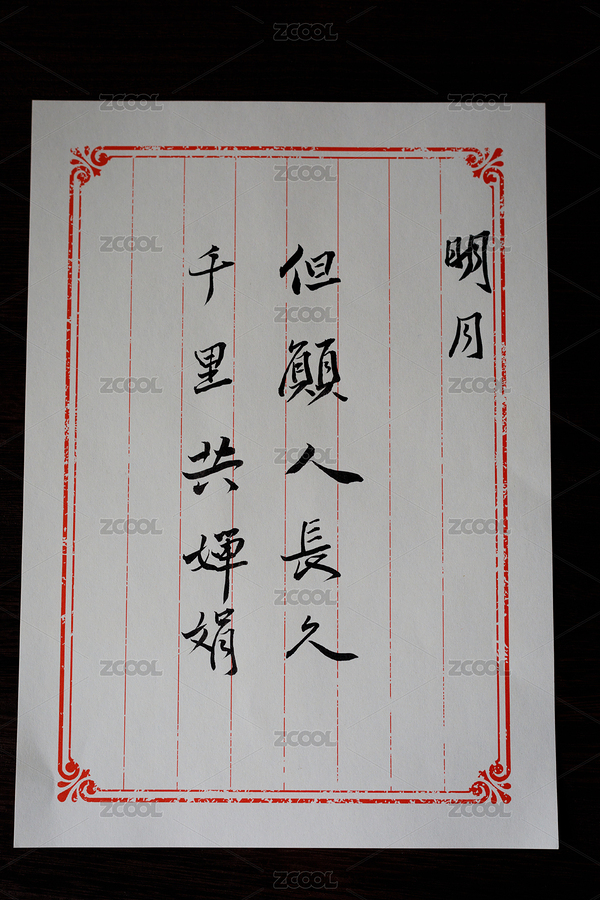 明月
但願人長久
千里共嬋娟
ZCOOL